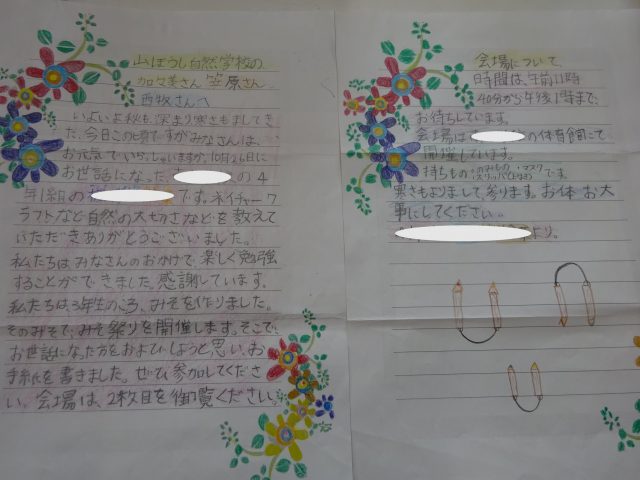 山ぼうし自然学校の
加々美さん 笠原さん
西牧さんへ
いよいよ秋も深まり寒さもましてき
た、今日この頃ですがみなさんは、
お元気でいらっしゃいますか。10月26日に
お世話になった、 の4
年1組の です。ネイチャーク
ラフトなど自然の大切さなどを教えて
いただきありがとうございました。
私たちはみなさんのおかげで楽しく勉強
することができました。感謝しています。
私たちは3年生のころ、みそを作りました。
そのみそで、みそ祭りを開催します。そこで、
お世話になった方をおよびしようと思い、お
手紙を書きました。ぜひ、参加してくださ
い。会場は、2枚目を御覧ください。
会場について
時間は、午前11時
40分から午後1時まで、
お待ちしています。
会場は の体育館にて
開催しています。
持ちもの のみもの・マスク
スリッパ です
寒さもよりまして、参ります。お体お大
事にしてください。
より。